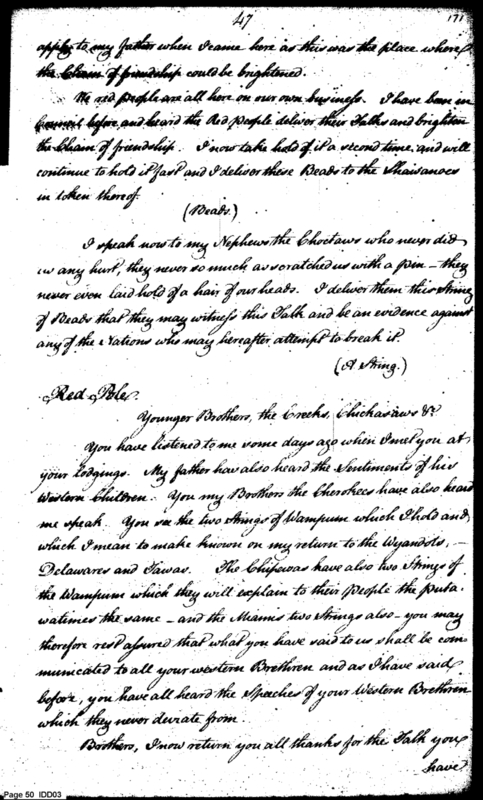 47
171
apply to my father when I came here as this was the place where
the Chain of friendship could be brightened.
We red people are all here on our own business. I have been in
Council before and heard the Red people deliver their Talks and brighten
the Chain of friendship. I now take hold of it a second time, and will
continue to hold it fast and I deliver these Beads to the Shawanoes
in token thereof.
(Beads.)
I speak now to my Nephews, the Choctaws who never did
us any hurt, they never so much as scratched us with a pin — they
never even laid hold of a hair of our heads. I deliver them this String
of Beads that they may witness this Talk and be an evidence against
any of the Nations who may hereafter attempt to break it.
(A String.)
Red Pole
Younger Brothers, the Creeks, Chickasaws &c
You have listened to me some days ago when I met you at
your lodgings. My father has also heard the Sentiments of his
Western Children. You my Brothers the Cherokees have also heard
me speak. You see the two Strings of Wampum which I hold and
which I mean to make known on my return to the Wyandots, —
Delawares and Tawas. The Chipewas have also two Strings of
the Wampum which they will explain to their people the Puta-
watimes the same — and the Miamis two Strings also — you may
therefore rest assured that what you have said to us shall be com-
municated to all your western Brethren and as I have said
before, you have all heard the Speeches of your Western Brethren
which they never deviate from.
Brothers, I now return you all thanks for the Talk you
have
Page 50 IDD03